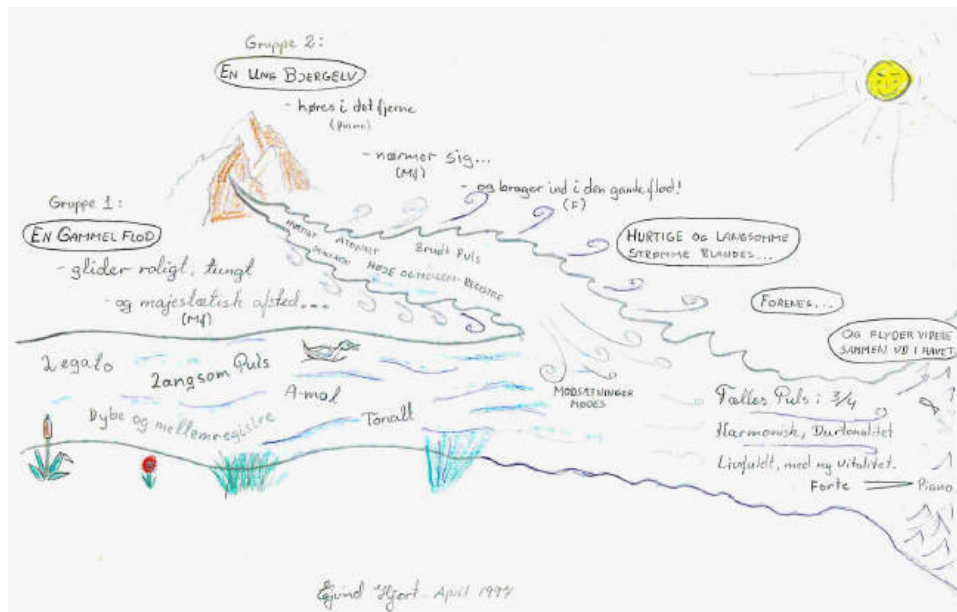 Gruppe 2:
EN UNG BJERGELV
- høres i det fjerne
- nærmer sig...
(Mf)
- og brager ind i den gamle flod!
(F)
Gruppe 1:
EN GAMMEL FLOD
- glider roligt, tungt
- og majestætisk afsted...
(Mf)
HURTIGT ATONALT Brudt Puls
HØJE OG MELLEM-REGISTRE
HURTIGE OG LANGSOMME
STRØMME BLANDES...
FORENES...
OG FLYDER VIDERE
SAMMEN UD I HAVET
Legato
Langsom Puls
A-mol
Dybe og mellemregistre
Tonalt
MODSÆTNINGER
MØDES
Fælles Puls i 3/4
Harmonisk, Durtonalitet
Livfuldt, med ny vitalitet.
Forte Piano
Ejvind Hjort - April 1997